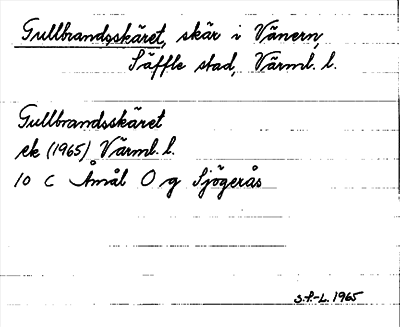 Gullbrandsskäret, skär i Vänern,
Säffle stad, Värml. l.
Gullbrandsskäret
ek (1965) Värml. l.
10 C Åmål O g Sjögerås
S.P.-L. 1965